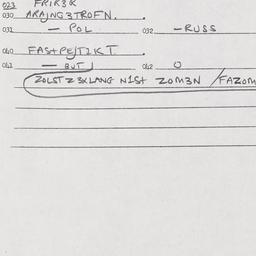 023 FRIR3R
030 ARAJNG3TROFN.
031 — POL 032 — RUSS
040 FASTPEJTZKT
041 — BUT J 042 O
ZOLST Z3XLANG N1St ZOM3N / FAZOM